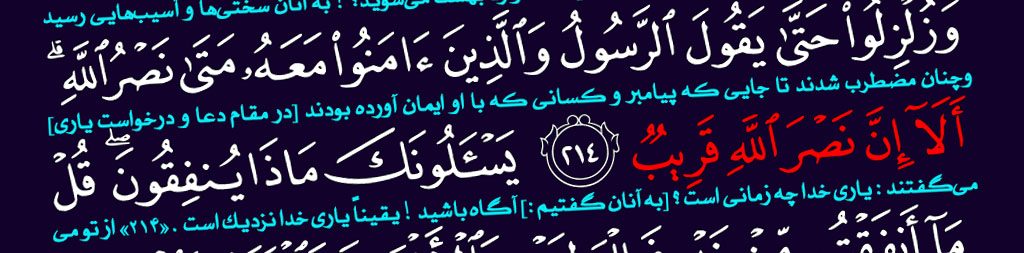 به آنان سختی‌ها و آسیب‌هایی رسید
وَزُلْزِلُوا۟ حَتَّىٰ يَقُولَ ٱلرَّسُولُ وَٱلَّذِينَ ءَامَنُوا۟ مَعَهُۥ مَتَىٰ نَصْرُ ٱللَّهِ ۗ
وچنان مضطرب شدند تا جایی که پیامبر و کسانی که با او ایمان آورده بودند [در مقام دعا و درخواست یاری]
أَلَآ إِنَّ نَصْرَ ٱللَّهِ قَرِيبٌ ٢١٤ يَسْـَٔلُونَكَ مَاذَا يُنفِقُونَ ۖ قُلْ
می‌گفتند : یاری خدا چه زمانی است؟ [به آنان گفتیم :] آگاه باشید ! یقیناً یاری خدا نزدیك است . «۲۱۴» از تو می
مَآ أَنفَقْتُم مِّنْ خَيْرٍ